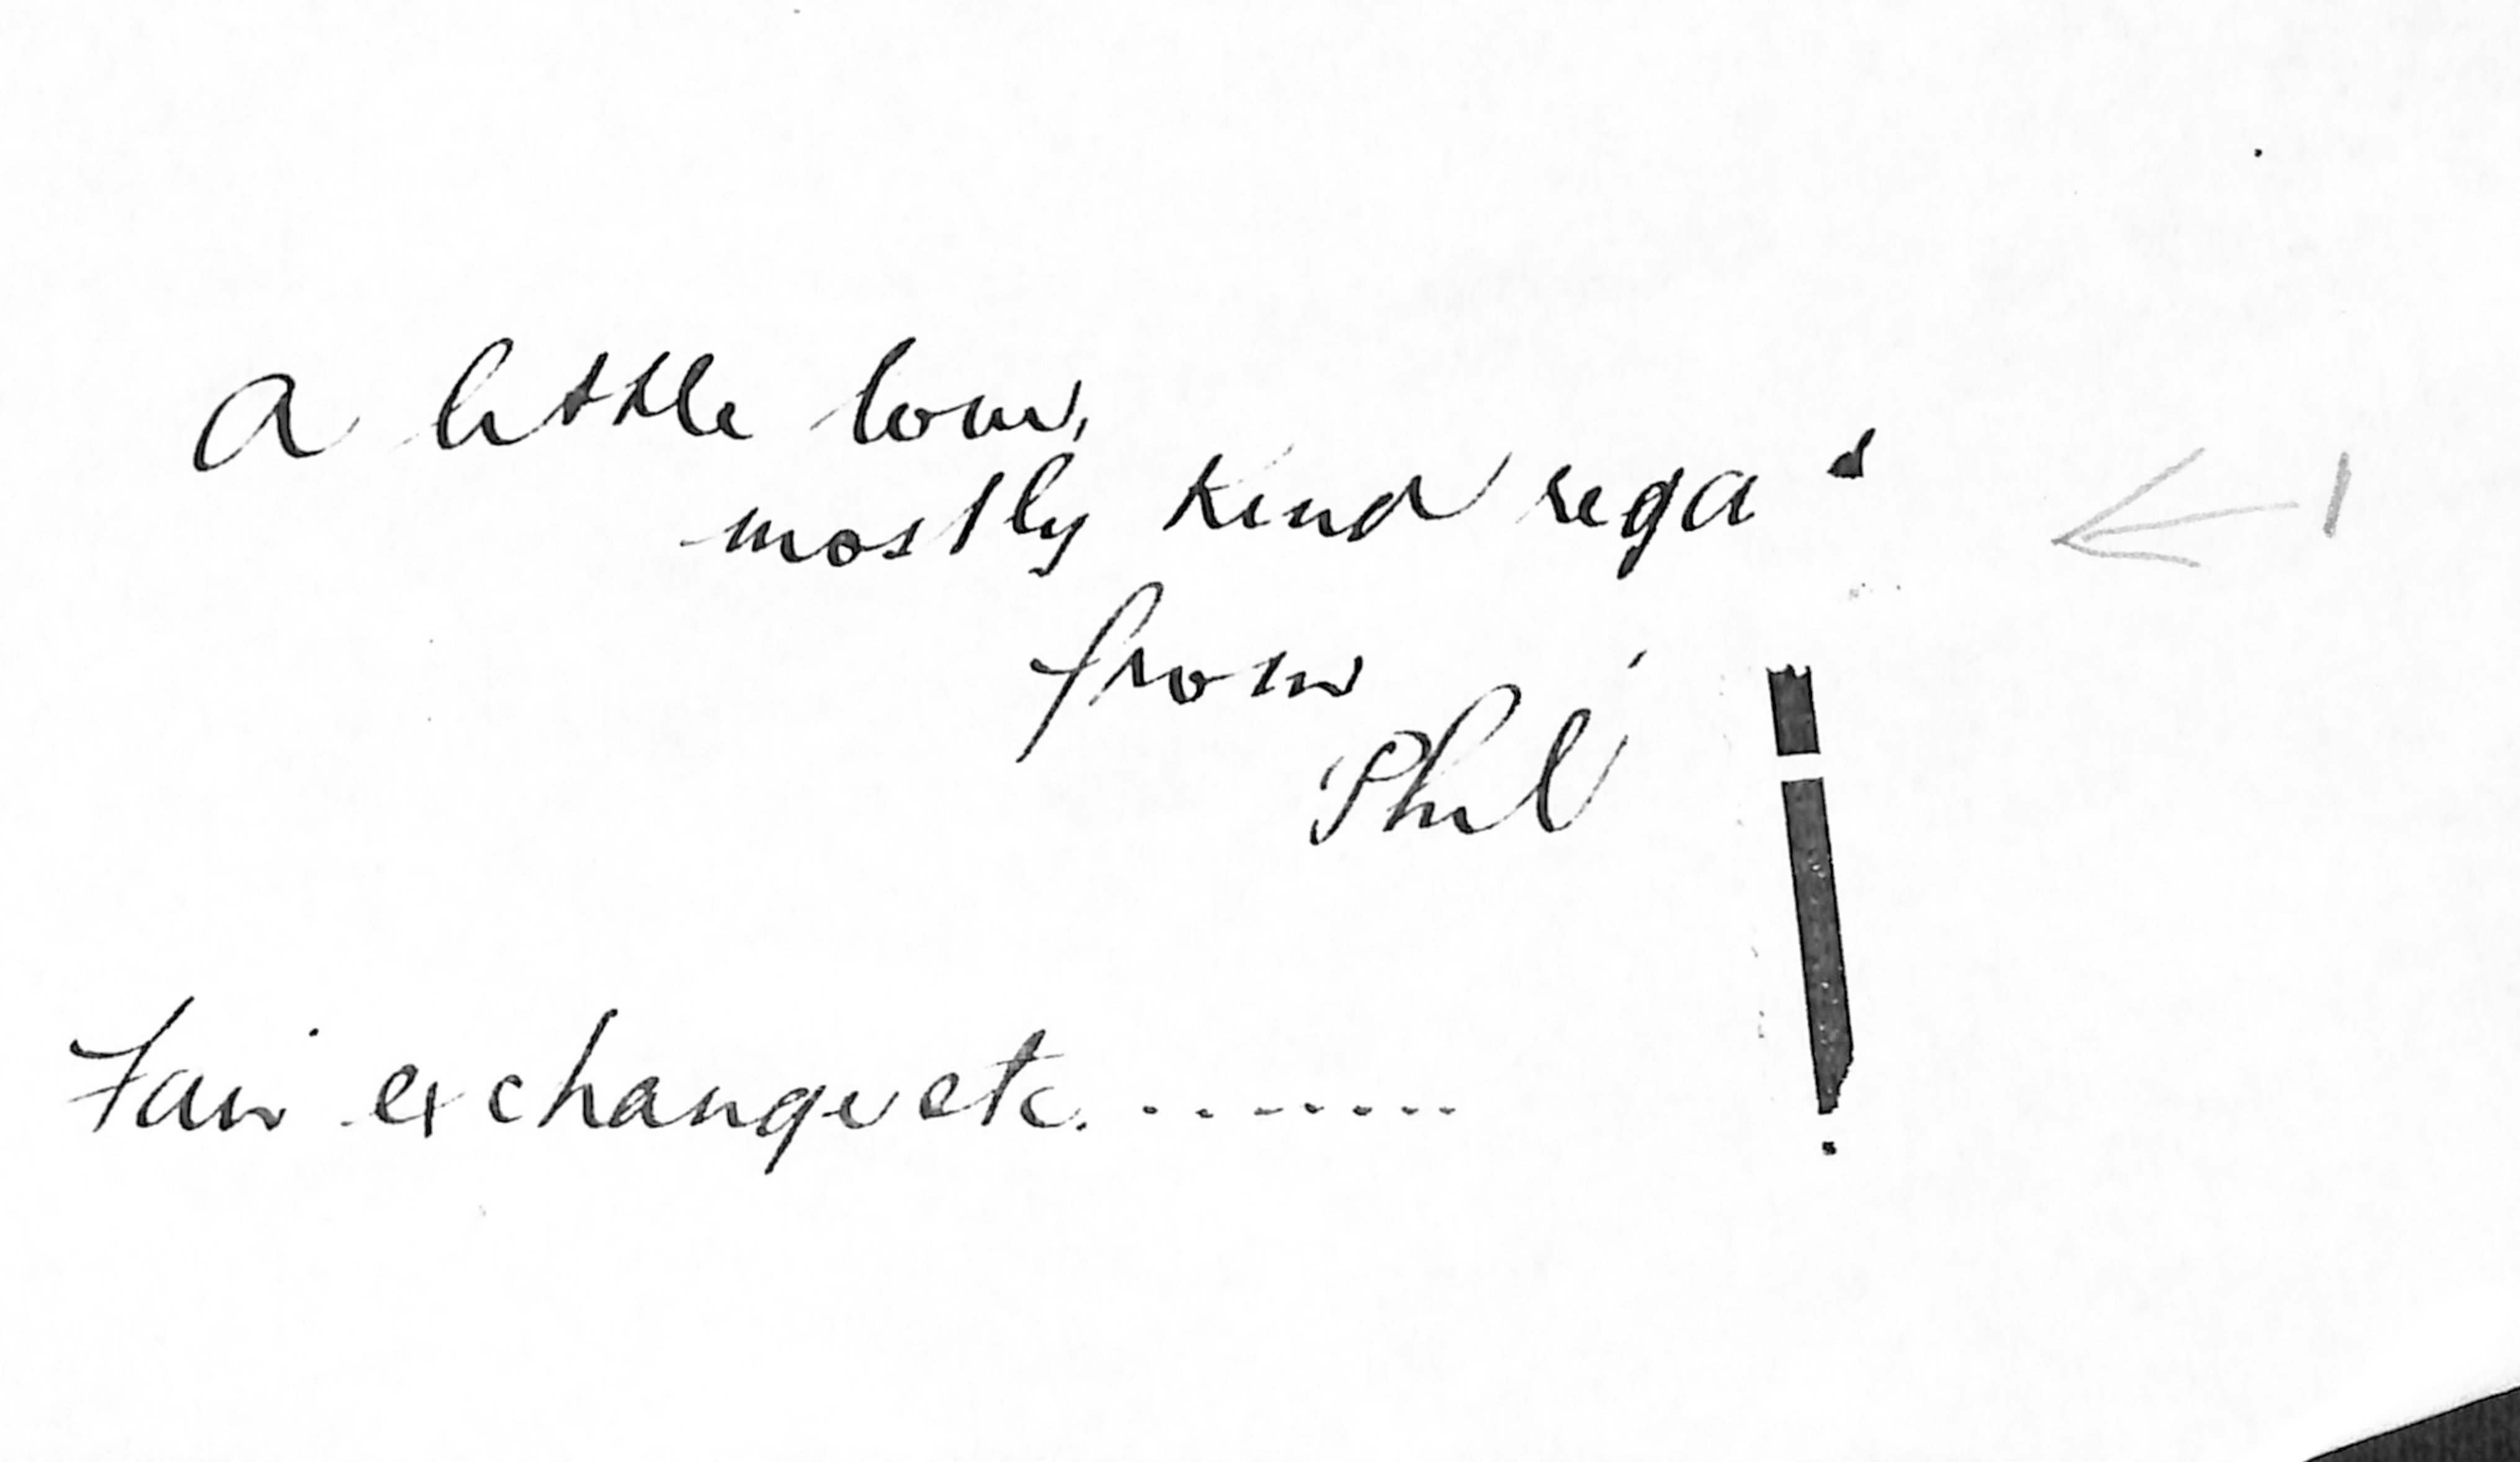 a little love,
mostly kind rega
from
Phil
Fair exchange etc. .........